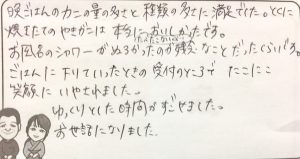 晩ごはんのカニの量の多さと種類の多さに満足でした。とくに
焼きたてのやきがには本当においしかったです。
お風呂のシャワーがぬるかったのが残念なことだったくらいです。
ごはんに下りていったときの受付のところでにこにこ
笑顔にいやされました。
ゆっくりとした時間がすごせました。
お世話になりました。